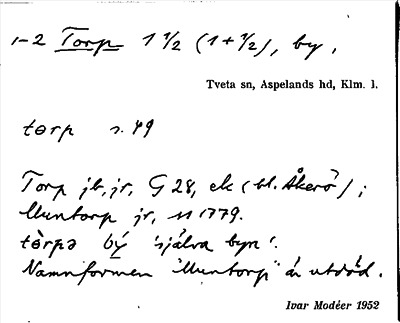 1-2 Torp 1 1/2 (1+1/2), by,
Tveta sn, Aspelands hd, Klm. l.
tɵrp s. 49
Torp jb, jr, G 28, ek (bl. Åkerö);
Muntorp jr, 11 1779.
tɵ̀rpə bý 'själva byn'.
Namnformen "Muntorp" är utdöd.
Ivar Modéer 1952